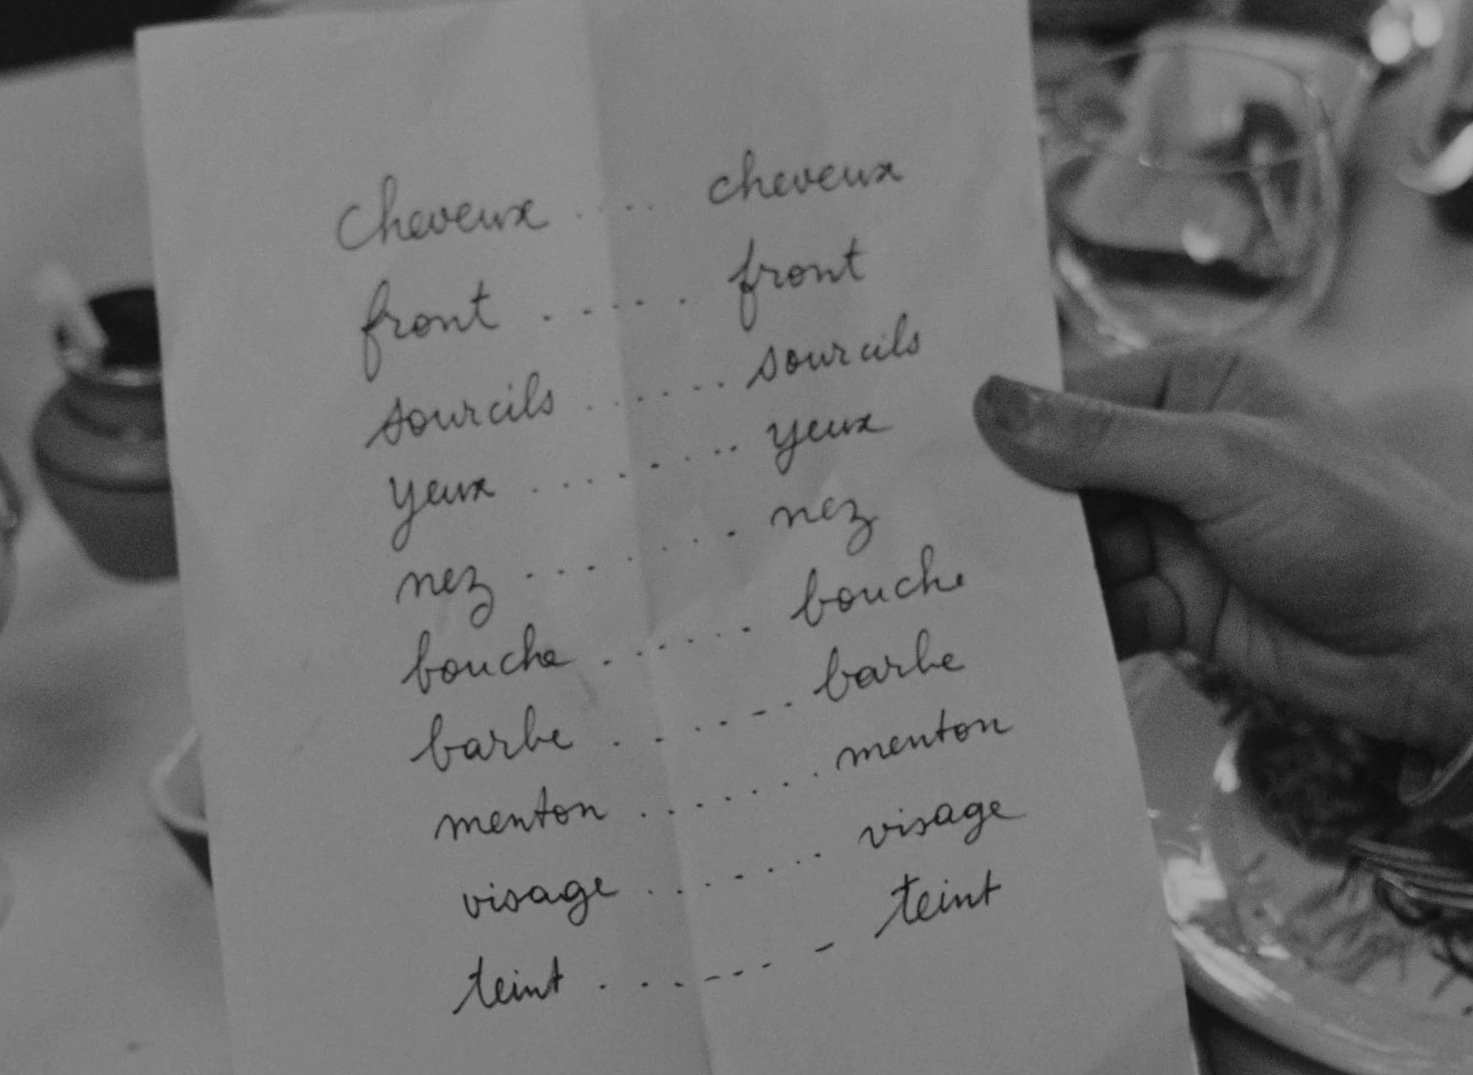 cheveux .... cheveux
front ..... front
sourcils ...... sourcils
yeux ....... yeux
nez ....... nez
bouche ..... bouche
barbe ...... barbe
menton ...... menton
visage ...... visage
teint ...---  - teint